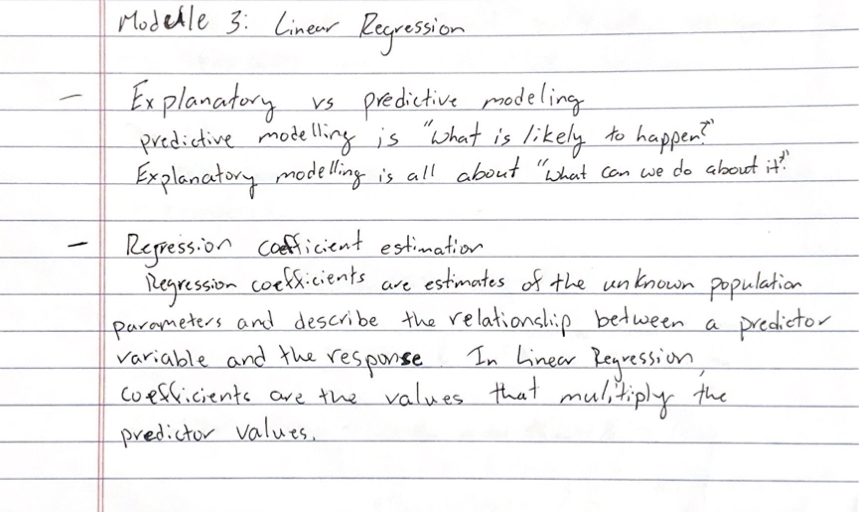 Module 3: Linear Regression
- Explanatory vs predictive modeling
predictive modelling is "what is likely to happen?"
Explanatory modelling is all about "what can we do about it?"
- Regression coefficient estimation
Regression coefficients are estimates of the unknown population
parameters and describe the relationship between a predictor
variable and the response. In Linear Regression,
coefficients are the values that mulitiply the
predictor values.